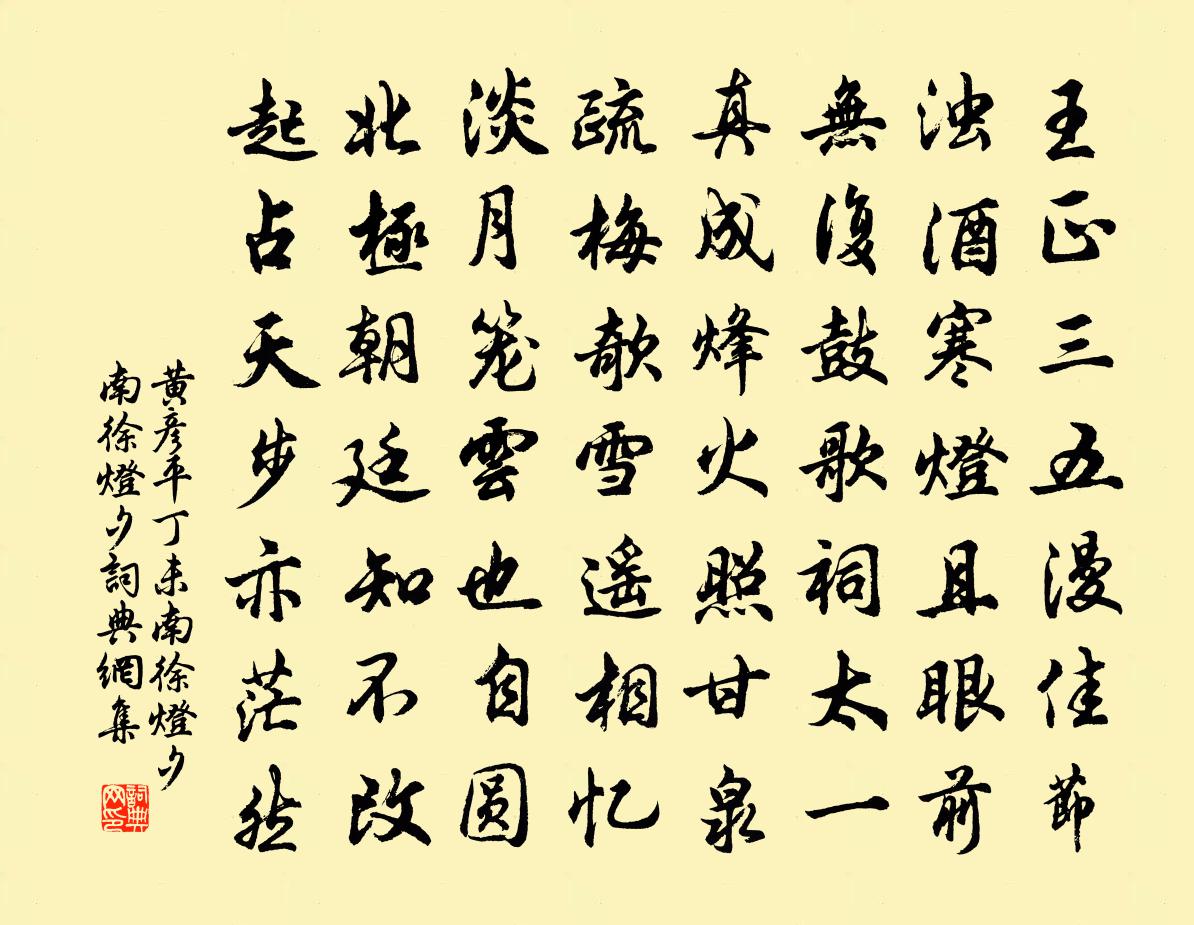 王正三五漫佳節
浊酒寒燈且眼前
無復鼓歌祠太一
真成烽火照甘泉
疏梅欹雪遥相忆
淡月笼雲也自圆
北極朝廷知不改
起占天步亦茫然
黄彦平丁未南徐燈夕
南徐燈夕詞典網集
詞典网印